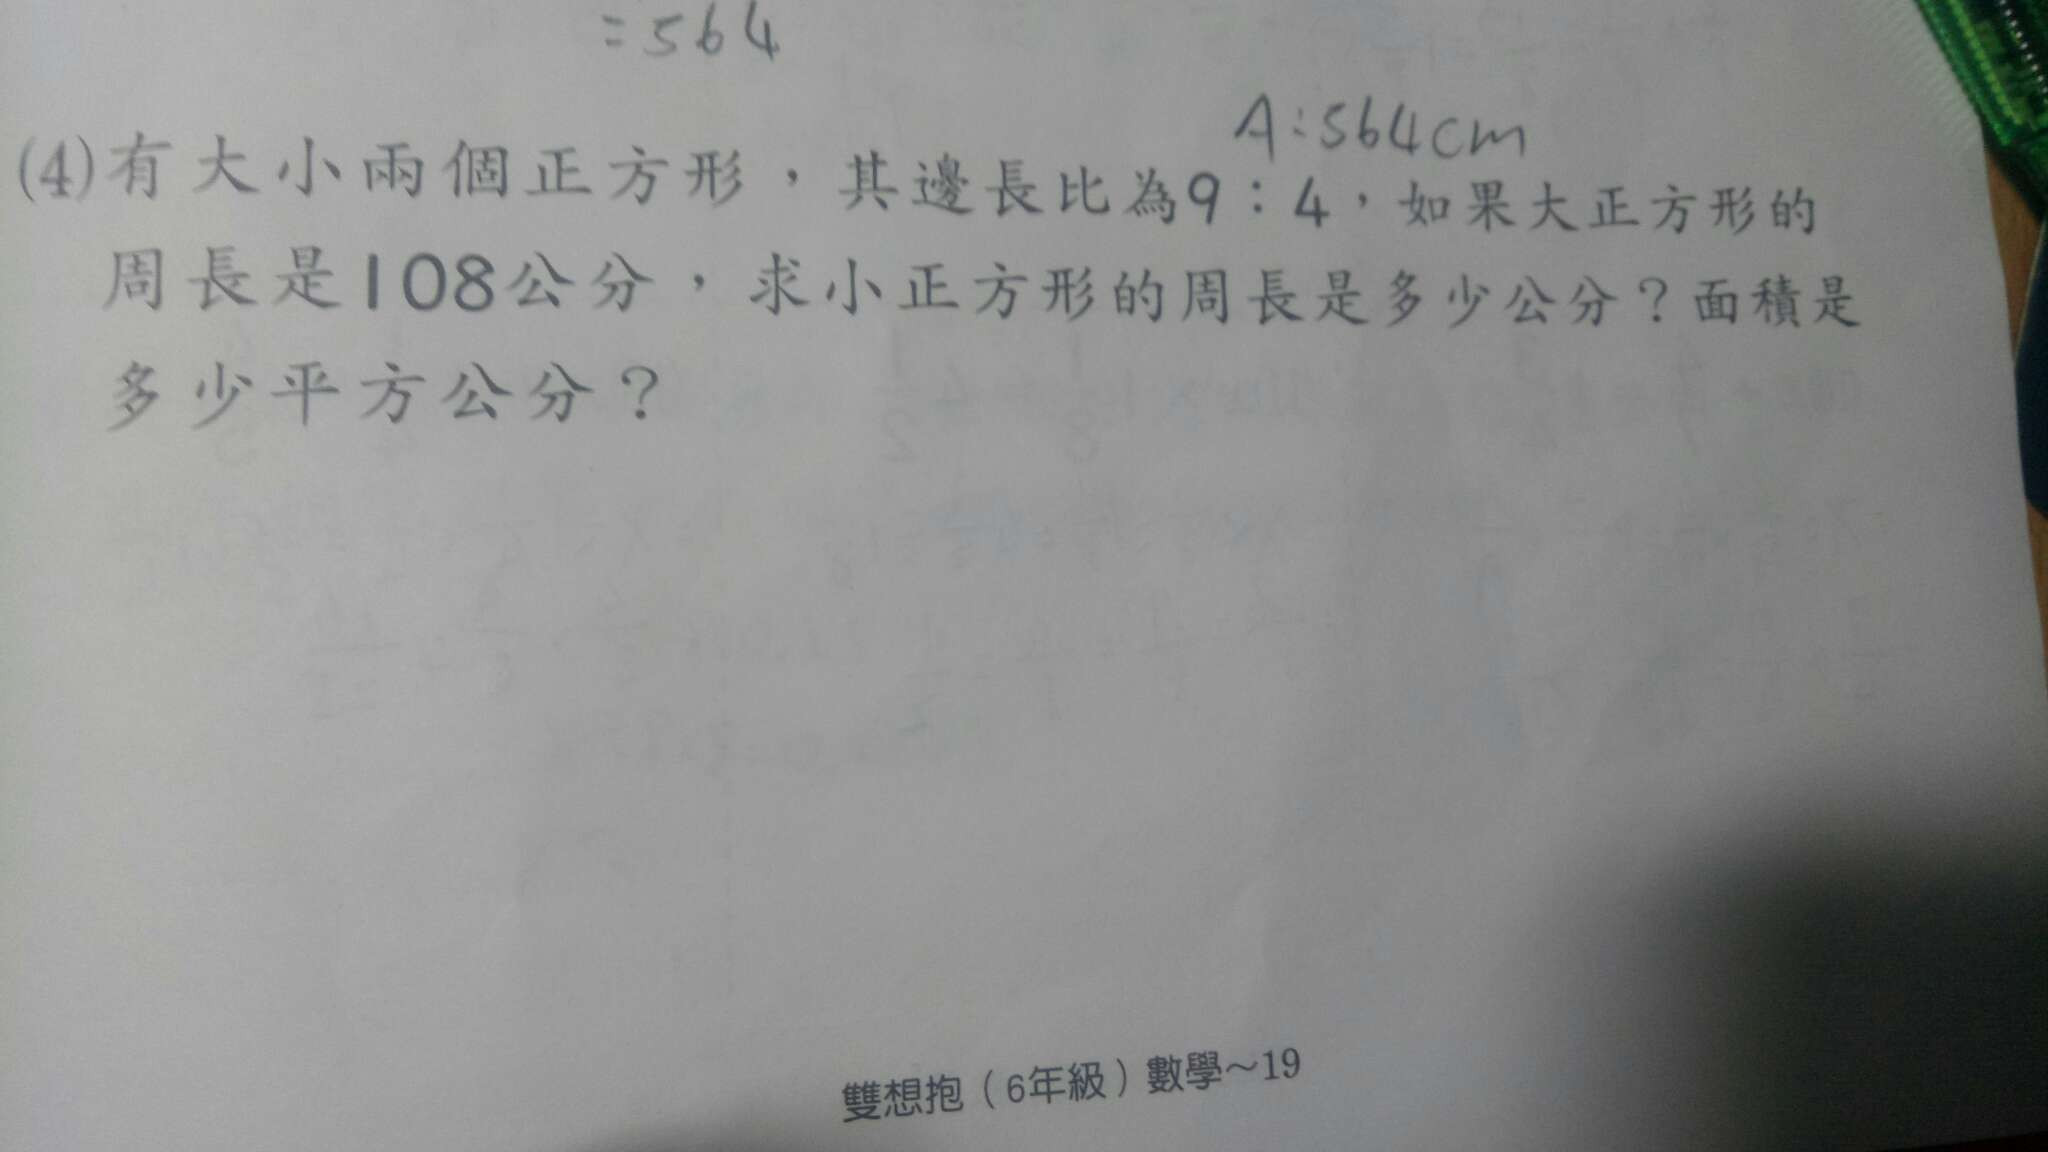 =564
A:564cm
(4)有大小兩個正方形，其邊長比為9：4，如果大正方形的
周長是108公分，求小正方形的周長是多少公分？面積是
多少平方公分？
雙想抱（6年級）數學～19